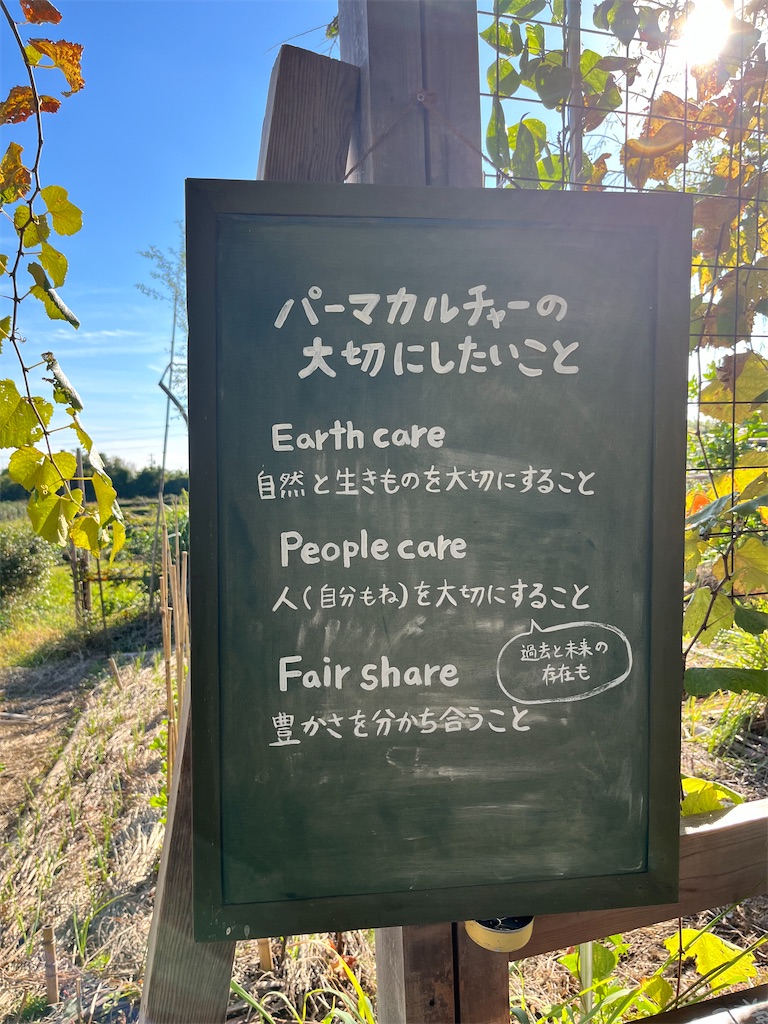 パーマカルチャーの
大切にしたいこと
Earth care
自然と生きものを大切にすること
People care
人(自分もね)を大切にすること
過去と未来の
存在も
Fair share
豊かさを分かち合うこと